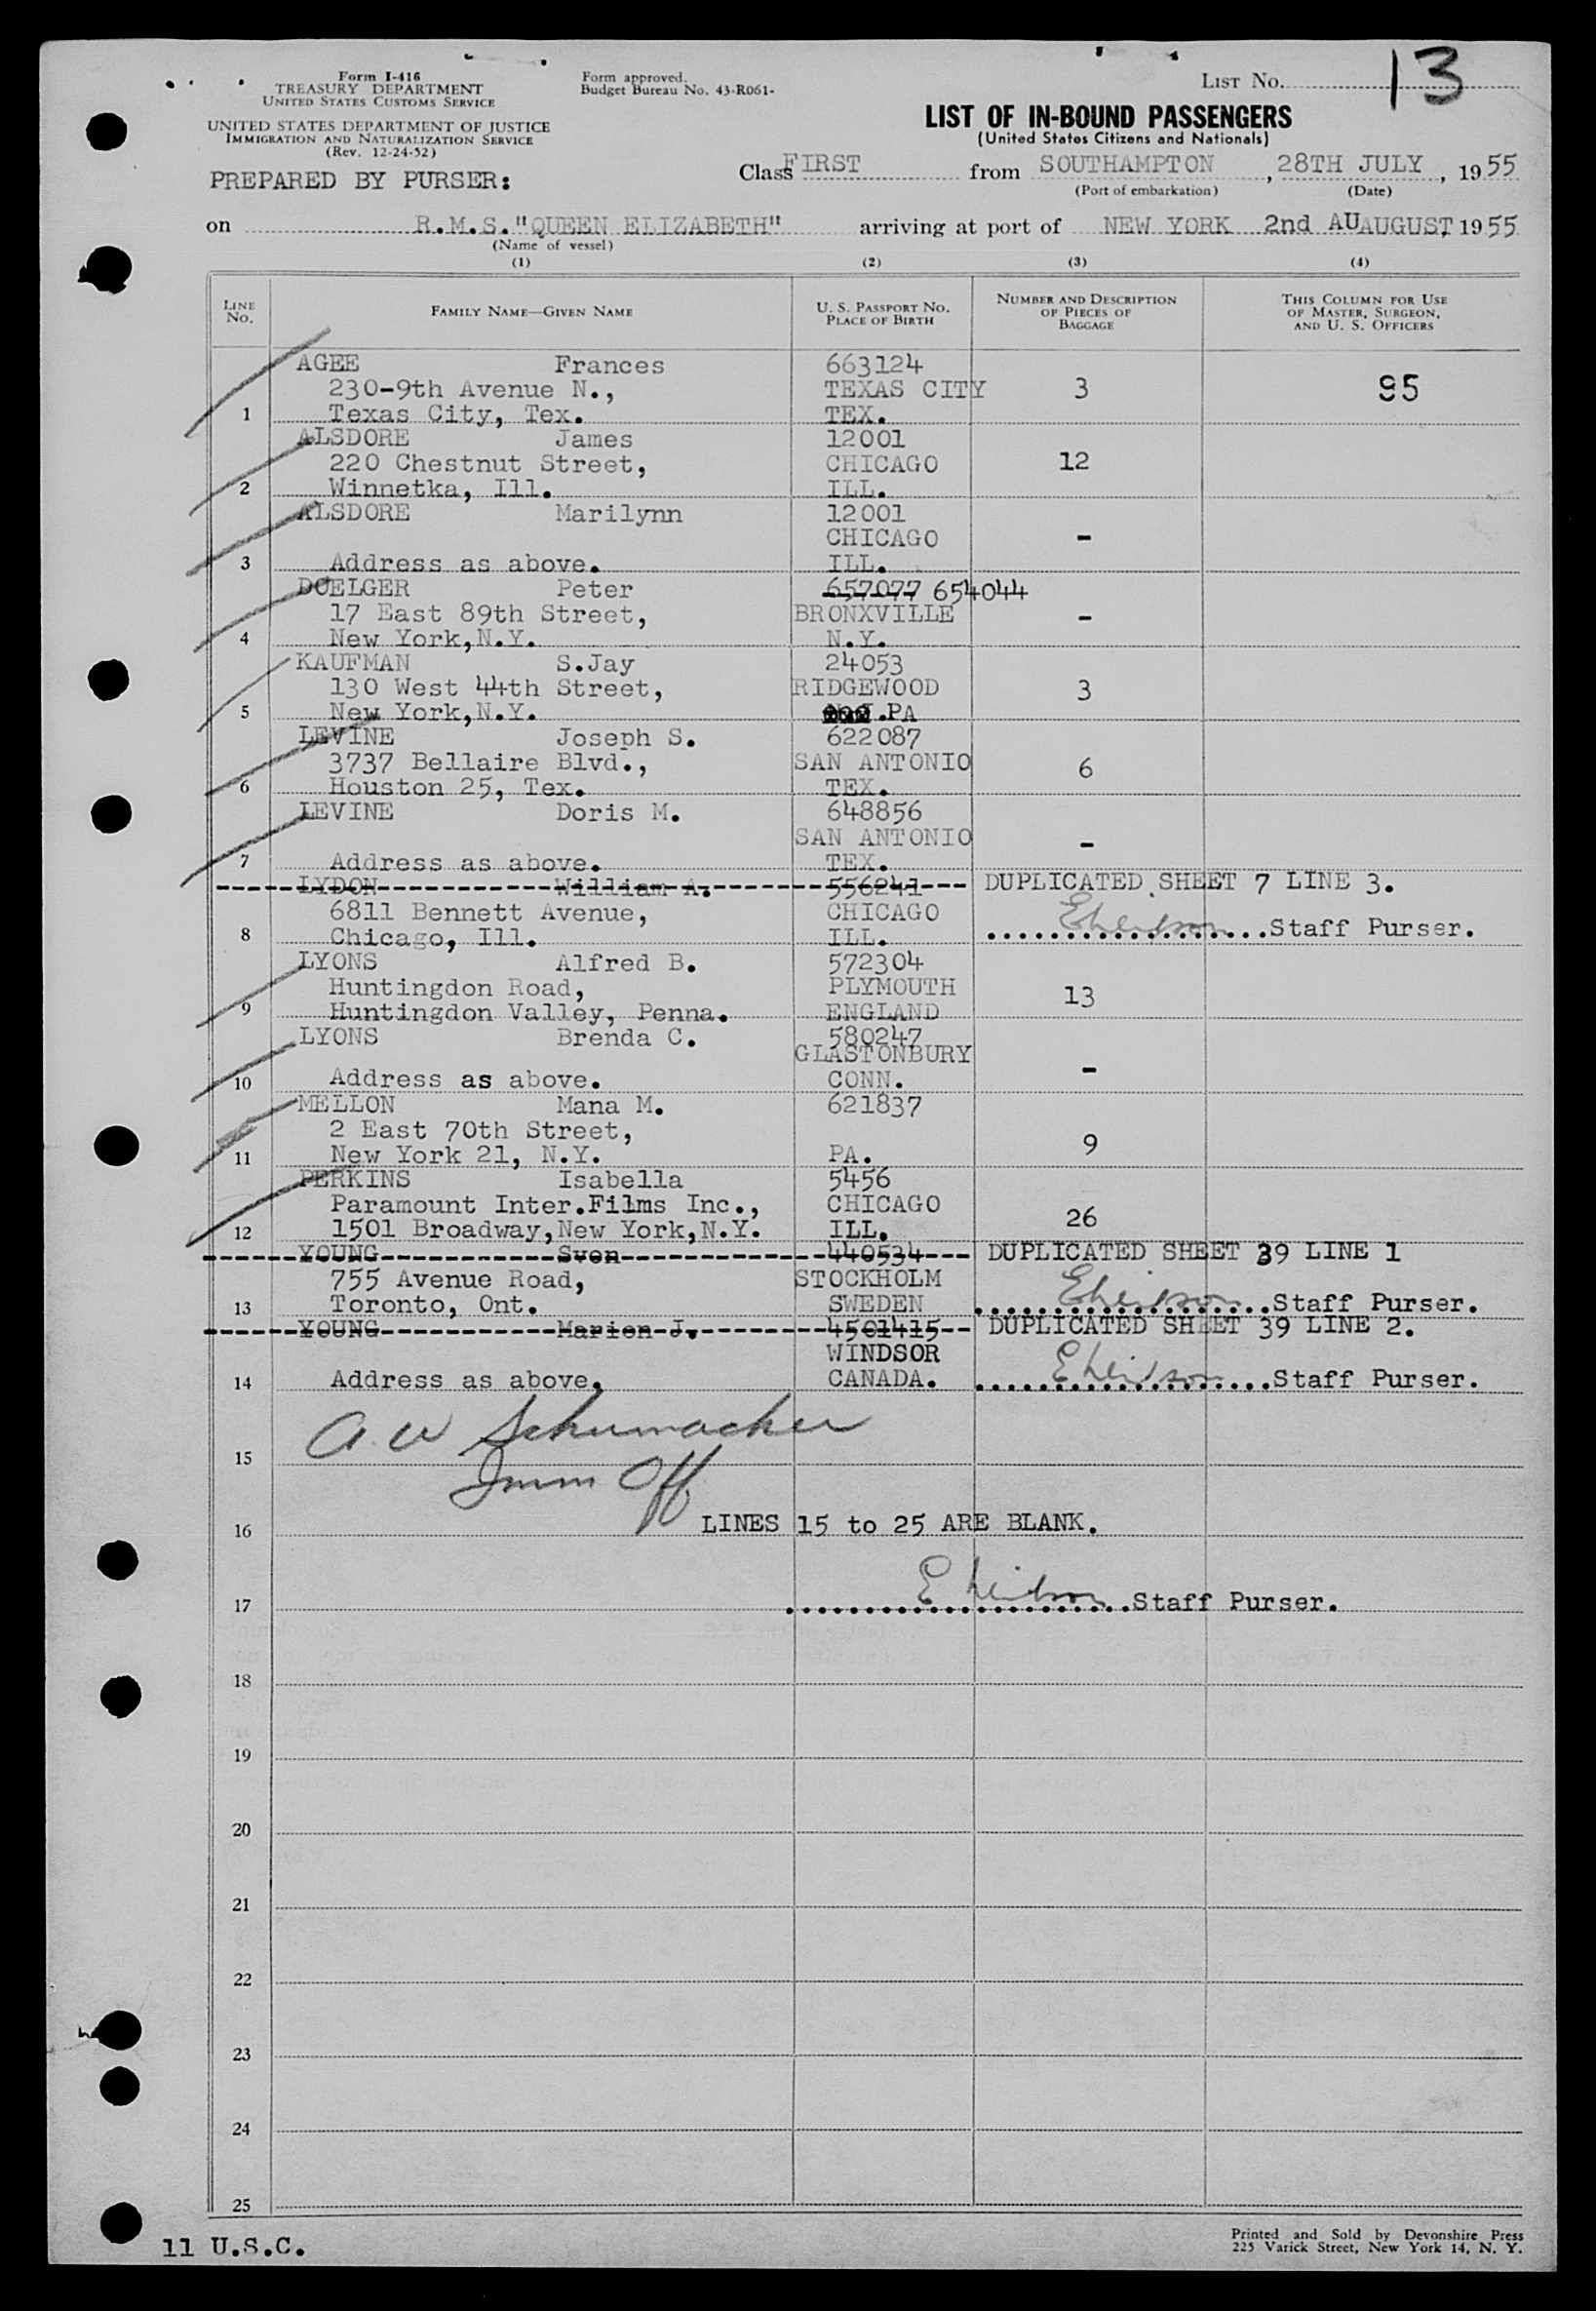 Form I-416
TREASURY DEPARTMENT
UNITED STATES CUSTOMS SERVICE
UNITED STATES DEPARTMENT OF JUSTICE
IMMIGRATION AND NATURALIZATION SERVICE
(Rev. 12-24-52)
PREPARED BY PURSER:
Form approved.
Budget Bureau No. 43-R061-
LIST NO. 13
LIST OF IN-BOUND PASSENGERS
(United States Citizens and Nationals)
Class FIRST from SOUTHAMPTON, 28TH JULY, 1955
(Port of embarkation) (Date)
on R.M.S. "QUEEN ELIZABETH" arriving at port of NEW YORK 2nd AUAUGUST, 1955
(Name of vessel)
(1) (2) (3) (4)
LINE NO. FAMILY NAME—GIVEN NAME U. S. PASSPORT NO. PLACE OF BIRTH NUMBER AND DESCRIPTION OF PIECES OF BAGGAGE THIS COLUMN FOR USE OF MASTER, SURGEON, AND U. S. OFFICERS
AGEE Frances 663124
230-9th Avenue N., TEXAS CITY 3 95
1 Texas City, Tex. TEX.
ALSDORE James 12001
220 Chestnut Street, CHICAGO 12
2 Winnetka, Ill. ILL.
ALSDORE Marilynn 12001
CHICAGO -
3 Address as above. ILL.
DOELGER Peter 657077 654044
17 East 89th Street, BRONXVILLE -
4 New York,N.Y. N.Y.
KAUFMAN S.Jay 24053
130 West 44th Street, RIDGEWOOD 3
5 New York,N.Y. .PA
LEVINE Joseph S. 622087
3737 Bellaire Blvd., SAN ANTONIO 6
6 Houston 25, Tex. TEX.
LEVINE Doris M. 648856
SAN ANTONIO -
7 Address as above. TEX.
LYDON William A. 556241 DUPLICATED SHEET 7 LINE 3.
6811 Bennett Avenue, CHICAGO
8 Chicago, Ill. ILL. Staff Purser.
LYONS Alfred B. 572304
Huntingdon Road, PLYMOUTH 13
9 Huntingdon Valley, Penna. ENGLAND
LYONS Brenda C. 580247
GLASTONBURY -
10 Address as above. CONN.
MELLON Mana M. 621837
2 East 70th Street, 9
11 New York 21, N.Y. PA.
PERKINS Isabella 5456
Paramount Inter.Films Inc., CHICAGO 26
12 1501 Broadway,New York,N.Y. ILL.
YOUNG Sven 440534 DUPLICATED SHEET 39 LINE 1
755 Avenue Road, STOCKHOLM
13 Toronto, Ont. SWEDEN Staff Purser.
YOUNG Marion J. 4501415 DUPLICATED SHEET 39 LINE 2.
WINDSOR
14 Address as above. CANADA. Staff Purser.
A W Schumacher
15
Imm Off
16 LINES 15 to 25 ARE BLANK.
17 Staff Purser.
18
19
20
21
22
23
24
25
11 U.S.C.
Printed and Sold by Devonshire Press
225 Varick Street, New York 14, N. Y.